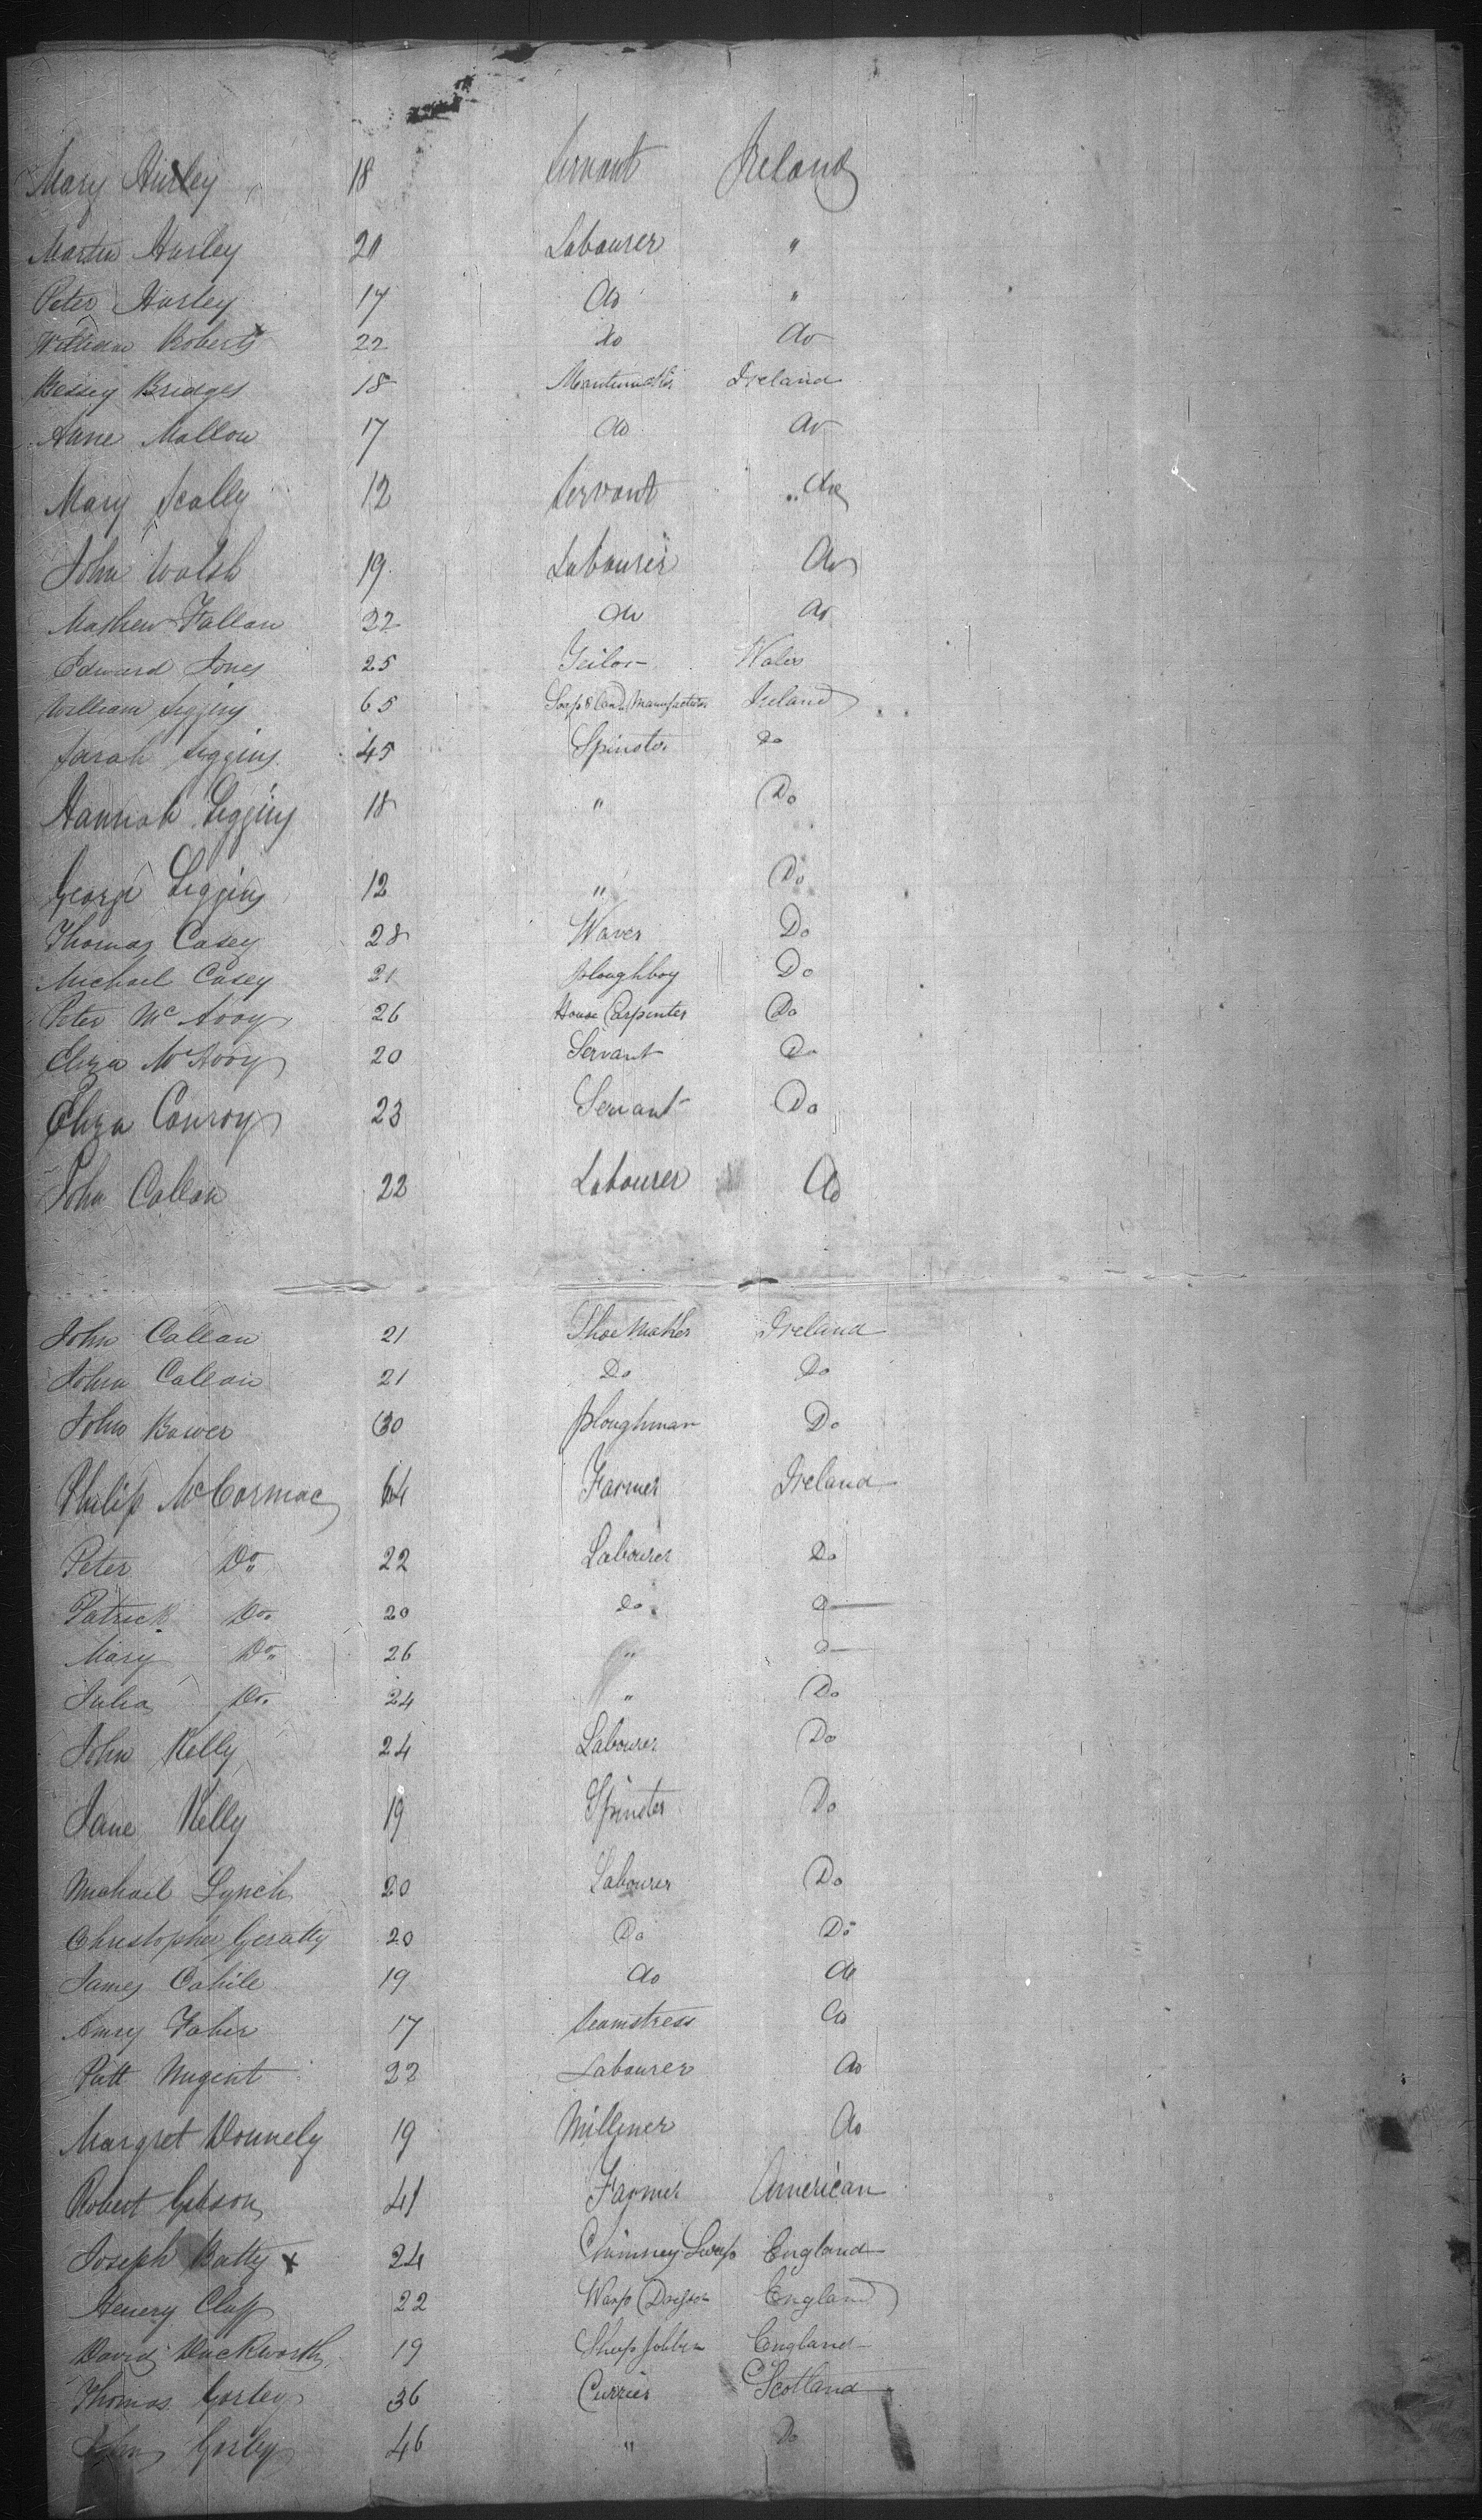 Mary Hurley 18 Servant Ireland
Martin Hurley 20 Labourer "
Peter Hurley 17 do "
William Roberts 22 do do
Bessey Bridges 18 Mantumaker Ireland
Anne Mallow 17 do do
Mary Scally 12 Servant " do
John Walsh 19 Labourer do
Mathew Fallan 22 do do
Edward Jones 25 Teilor Wales
William Liggins 65 Soap & Candl Manufacturer Ireland
Sarah Liggins 45 Spinster Do
Hannah Liggins 18 " Do
George Liggins 12 " Do
Thomas Casey 28 Waver Do
Michael Casey 21 ploughboy Do
Peter Mc Avoy 26 House Carpenter Do
Eliza McAvoy 20 Servant Do
Eliza Conroy 23 Servant Do
John Callan 22 Labourer do
John Callan 21 Shoe Maker Ireland
John Callan 21 Do Do
John Bower 30 ploughman Do
Philip McCormac 64 Farmer Ireland
Peter Do 22 Labourer Do
Patrick Do 20 do
Mary Do 26 "
Julia Do 24 " Do
John Kelly 24 Labourer Do
Jane Kelly 19 Spinster Do
Michael Lynch 20 Labourer Do
Christopher Geratty 20 Do Do
James Cahile 19 do do
Amey Faher 17 Seamstress do
Patt Nugent 22 Labourer do
Margret Donnely 19 Milliner do
Robert Gibson 41 Farmer American
Joseph Batty x 24 Chimney Sweep England
Henery Clap 22 Warp Dresser England
David Duckworth 19 Sheep Jobber England
Thomas Gorley 36 Currier Scotland
John Gorley 46 " Do